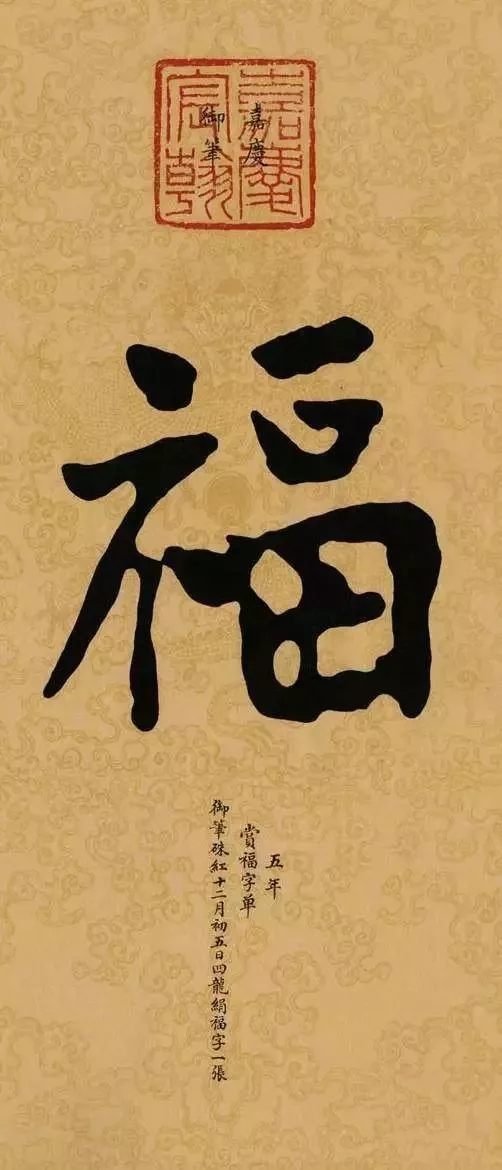 嘉慶宸翰
嘉慶
御筆
福
五年
賞福字单
御筆硃紅十二月初五日四龍絹福字一張